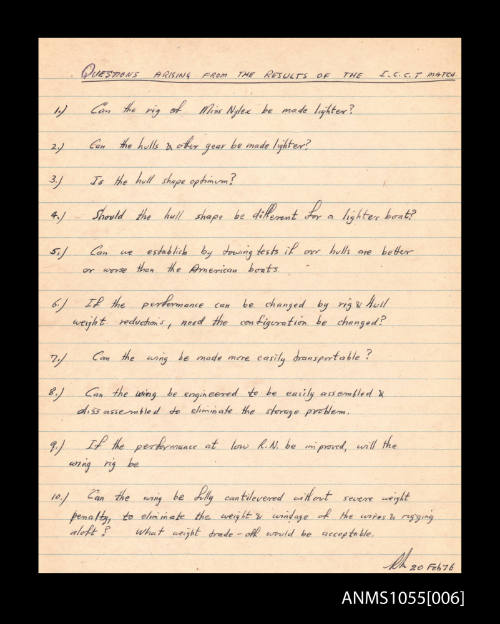 QUESTIONS ARISING FROM THE RESULTS OF THE I.C.C.T MATCH
1.) Can the rig of Miss Nylex be made lighter?
2.) Can the hulls & other gear be made lighter?
3.) Is the hull shape optimum?
4.) Should the hull shape be different for a lighter boat?
5.) Can we establish by towing tests if our hulls are better
or worse than the American boats.
6.) If the performance can be changed by rig & Hull
weight reductions, need the configuration be changed?
7.) Can the wing be made more easily transportable?
8.) Can the wing be engineered to be easily assembled &
dissassembled to eliminate the storage problem.
9.) If the performance at low R.N. be improved, will the
wing rig be
10.) Can the wing be fully cantilevered without severe weight
penalty, to eliminate the weight & windage of the wires & rigging
aloft? What weight trade-off would be acceptable.
20 Feb 76
ANMS1055[006]